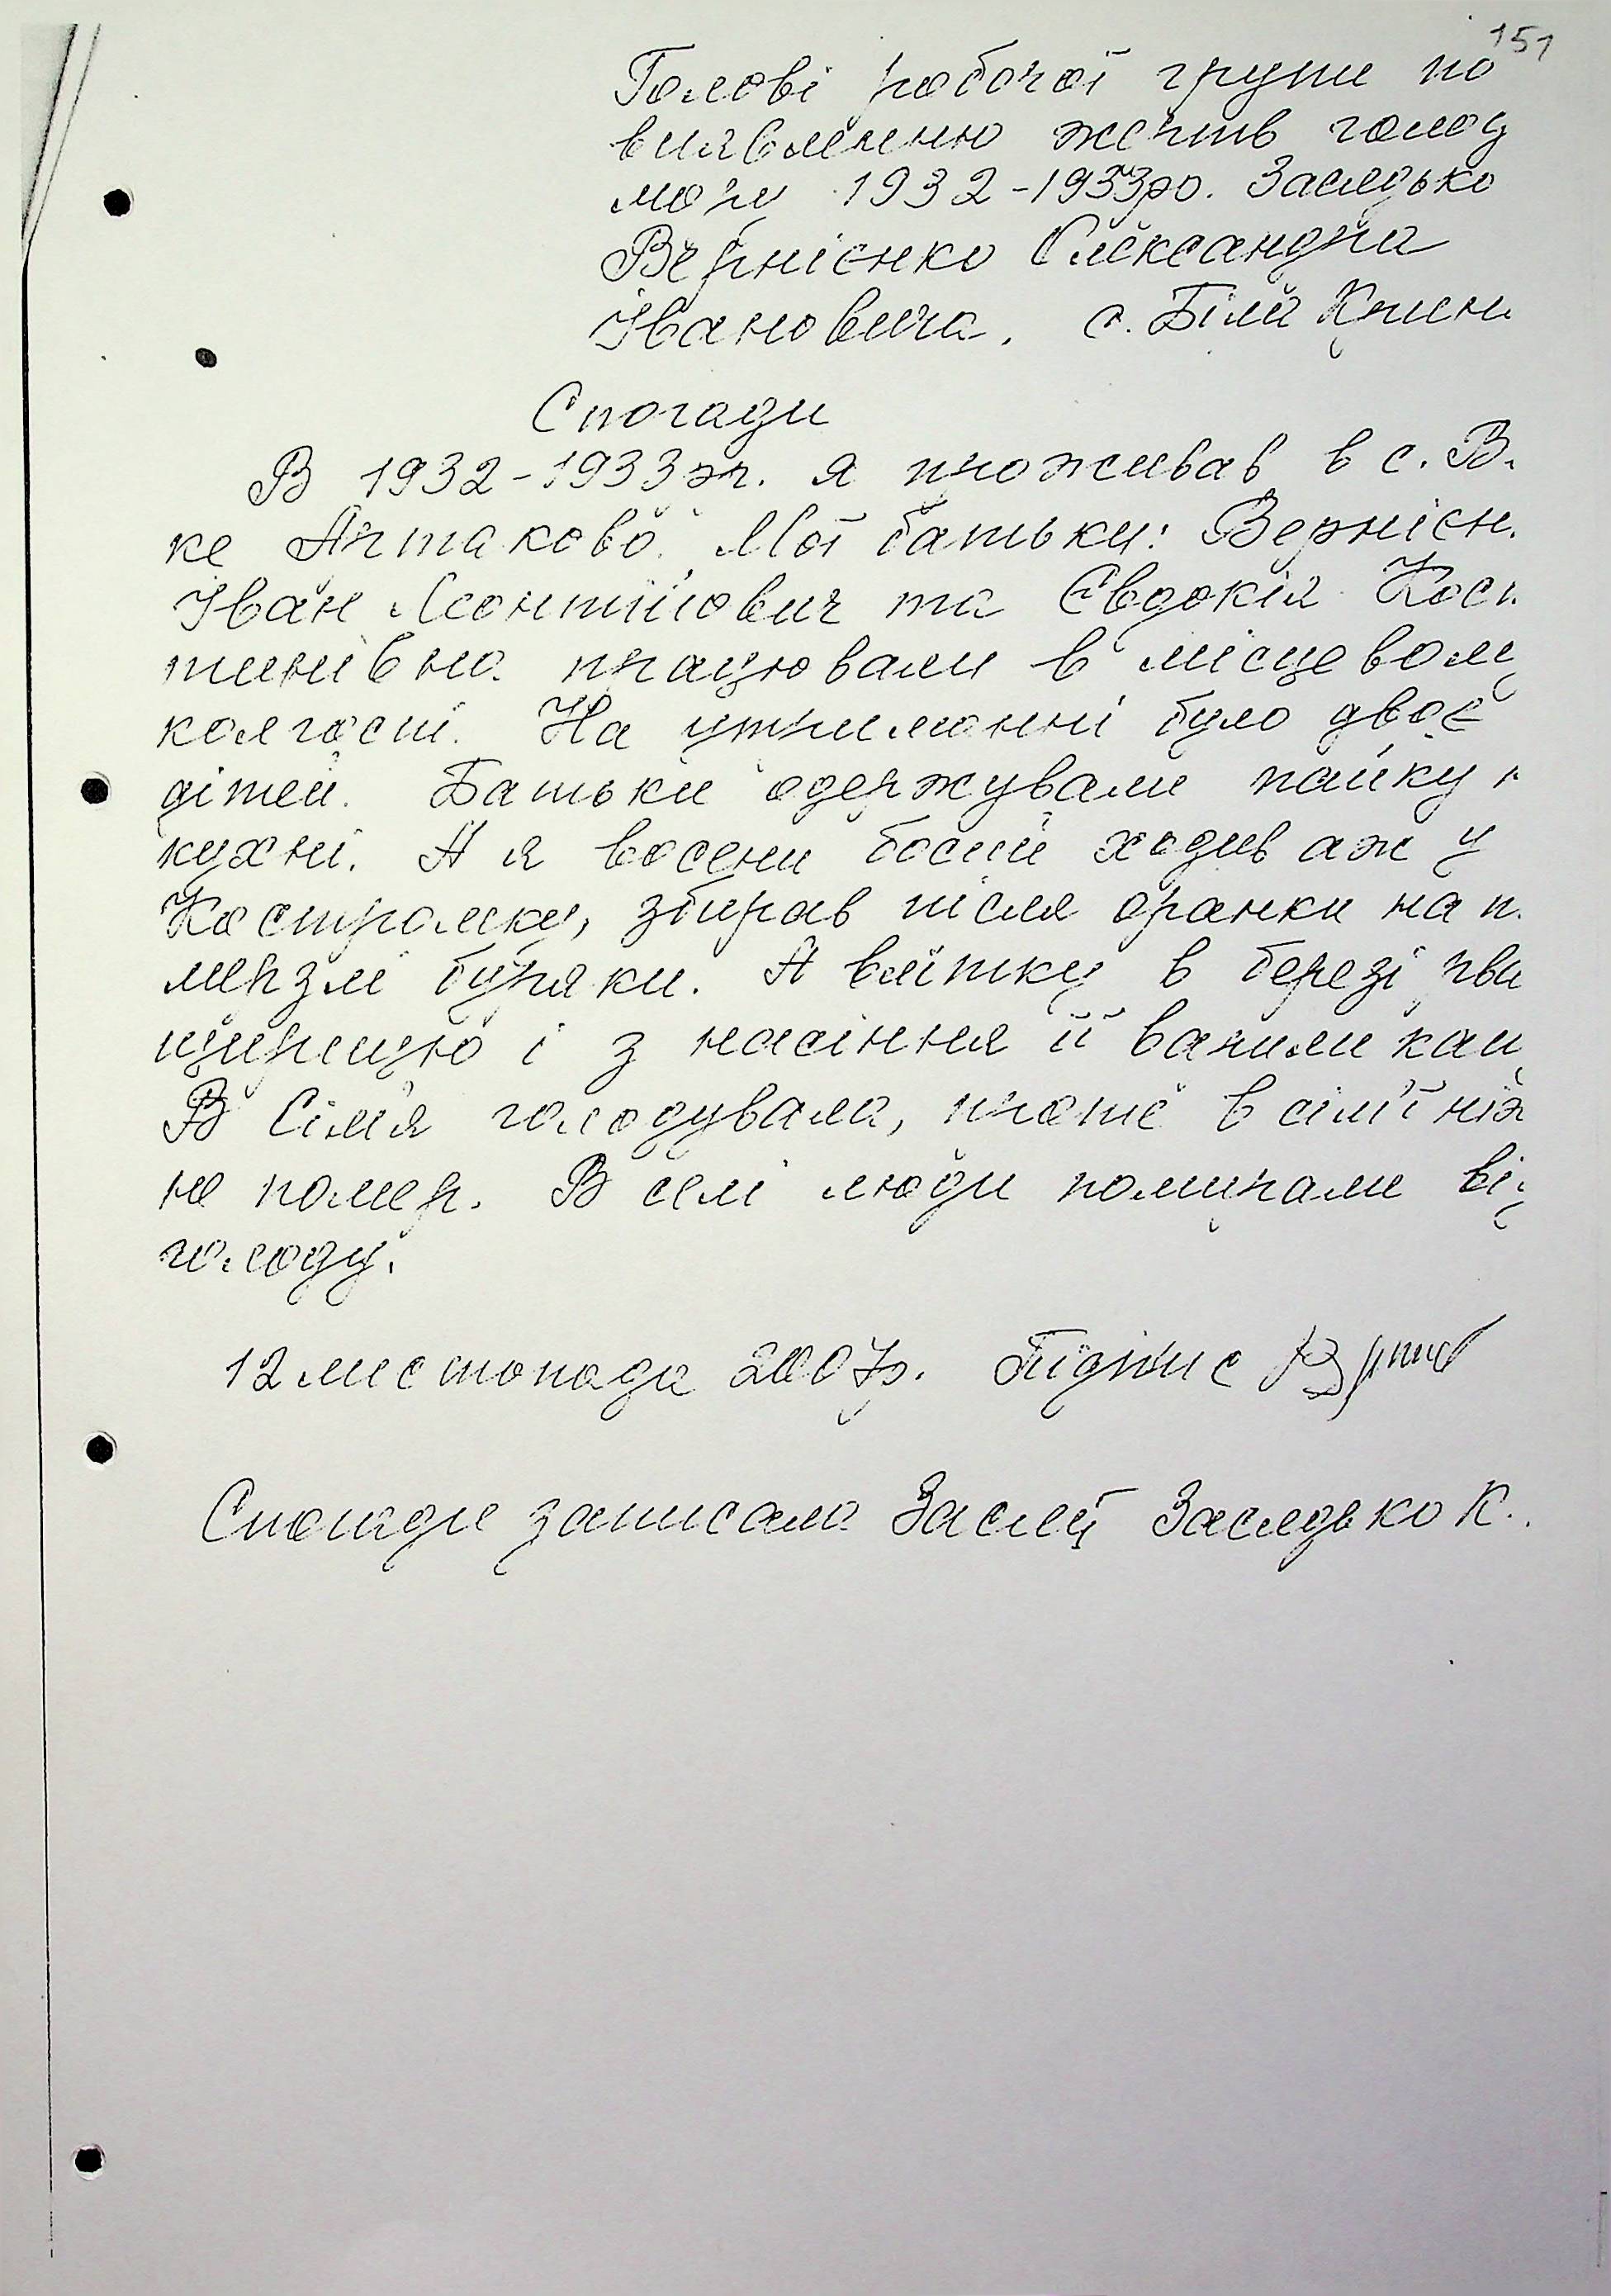 151
Голові робочої групи по
виявленню жертв голод
мору 1932-1933рр. Заследько
Вернієнко Олександра
Івановича. с. Біла Крин
Спогади
В 1932-1933рр. я проживав в с. В.
ке Артаково. Мої батьки: Вернієн.
Іван Леонтійович та Євдокія Кост
тинівна працювали в місцевому
колгоспі. На утриманні було двоє
дітей. Батьки одержували пайку
кухні. А я восени босий ходив аж у
Костромку, збирав після оранки на п.
мерзлі буряки. А влітку в березі рва
щирицю і з насіння її варили каш
В Сім'я голодувала, проте в сім'ї ніх
не помер. В селі люди помирали від
голоду.
12 листопада 2007р. Підпис
Спогади записала Заследько К.